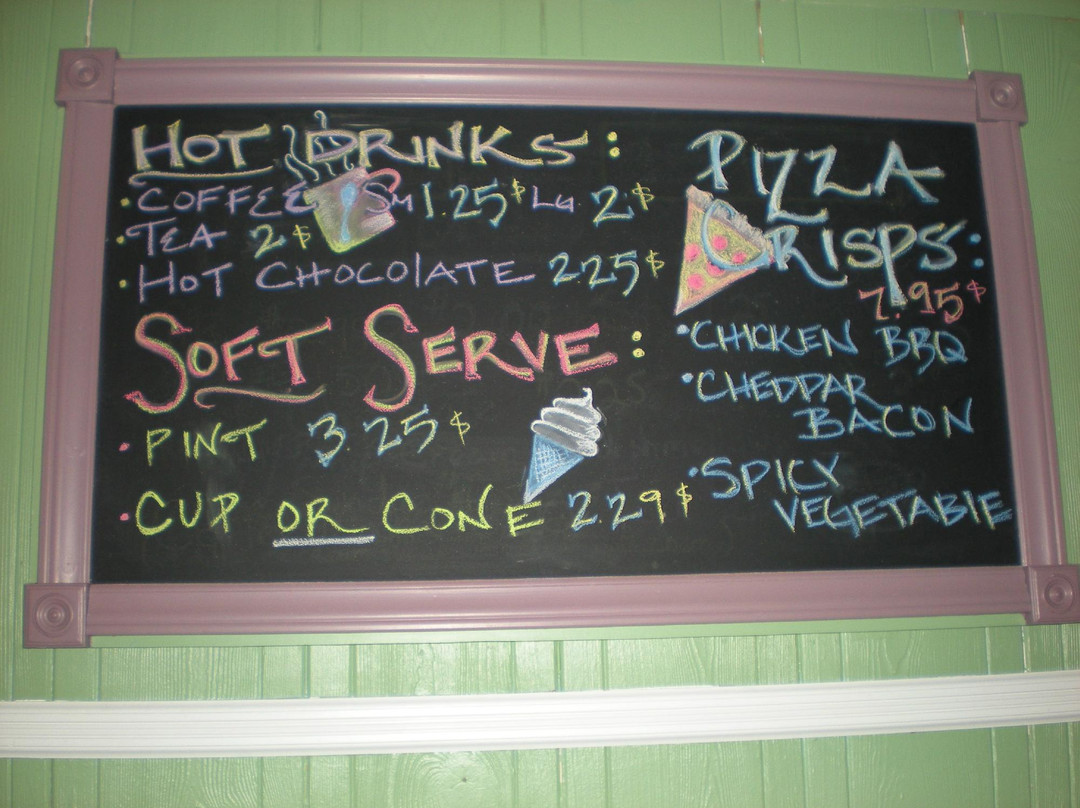 HOT DRINKS:
• COFFEE SM 1.25$ LG 2$
• TEA 2$
• HOT CHOCOLATE 2.25$
SOFT SERVE:
• PINT 3.25$
• CUP OR CONE 2.29$
PIZZA
CRISPS:
7.95$
• CHICKEN BBQ
• CHEDDAR
BACON
• SPICY
VEGETABLE